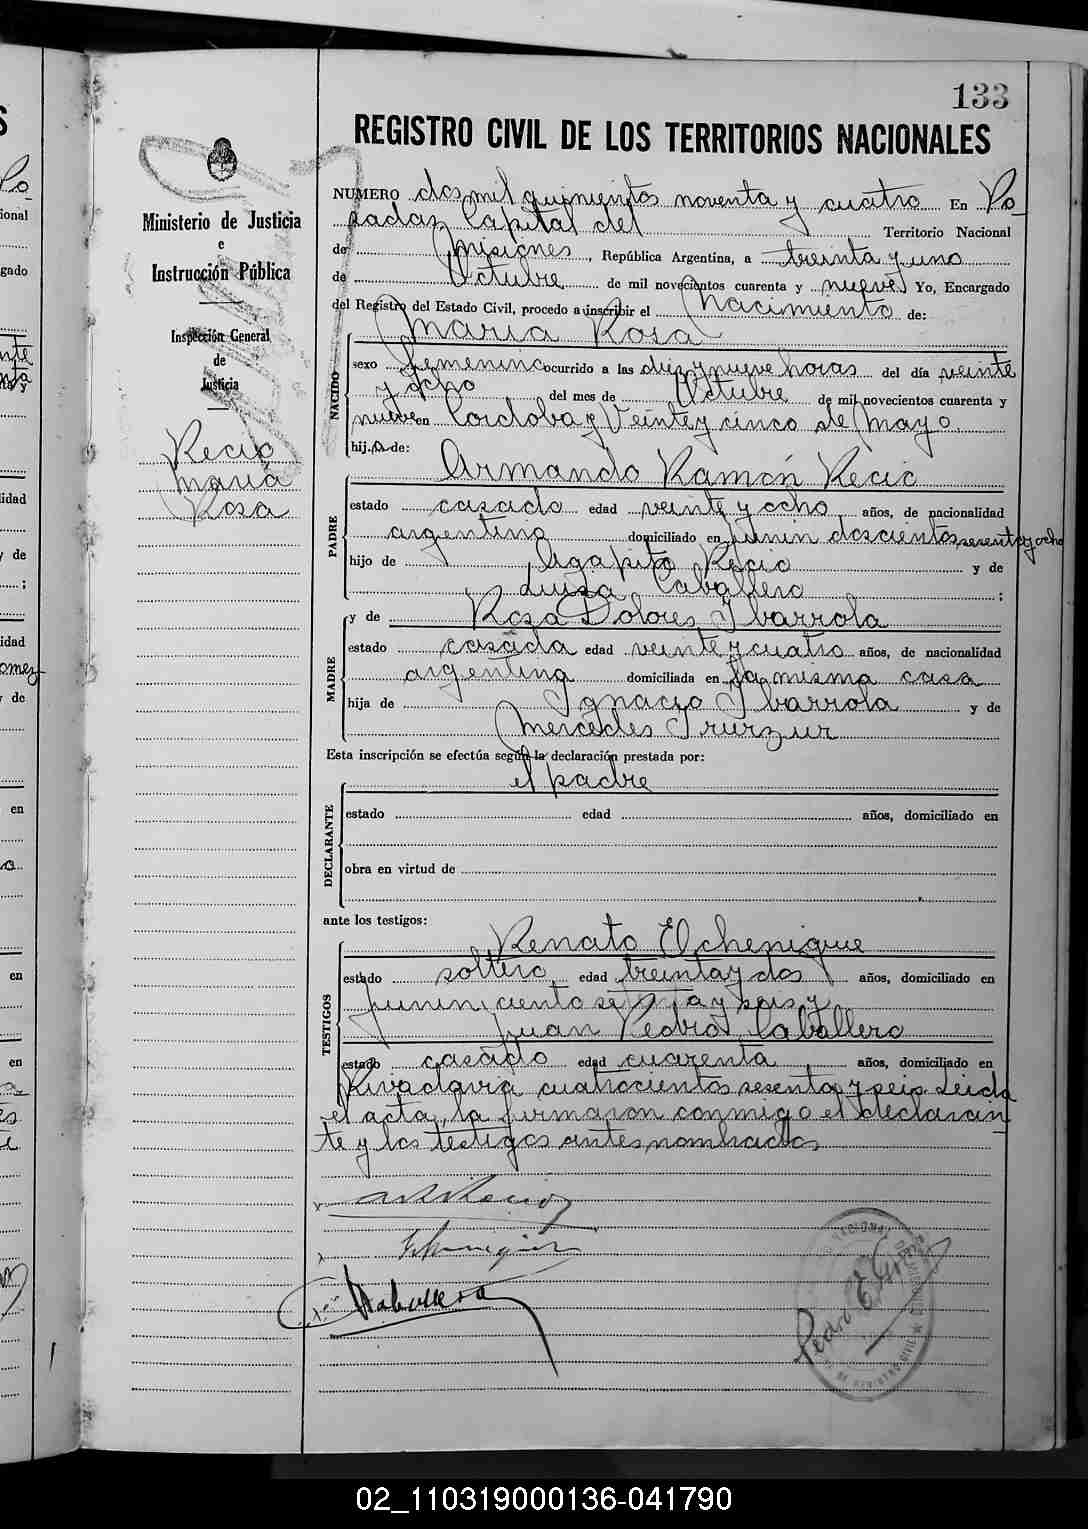 133
REGISTRO CIVIL DE LOS TERRITORIOS NACIONALES
Ministerio de Justicia
e
Instrucción Pública
Inspección General
de
Justicia
Recio
María
Rosa
NUMERO dos mil quinientos noventa y cuatro En Po-
sadas Capital del Territorio Nacional
de Misiones, República Argentina, a treinta y uno
de Octubre de mil novecientos cuarenta y nueve Yo, Encargado
del Registro del Estado Civil, procedo a inscribir el Nacimiento de:
María Rosa
NACIDO
sexo femenino ocurrido a las diez y nueve horas del día veinte
y ocho del mes de Octubre de mil novecientos cuarenta y
nueve en Cordoba y Veinte y cinco de Mayo
hij.a de:
Armando Ramón Recio
PADRE
estado casado edad veinte y ocho años, de nacionalidad
argentino domiciliado en Junin doscientos sesenta y ocho
hijo de Agapito Recio y de
Luisa Caballero ;
y de Rosa Dolores Ibarrola
MADRE
estado casada edad veinte y cuatro años, de nacionalidad
argentina domiciliada en la misma casa
hija de Ignacio Ibarrola y de
Mercedes Irurzur
Esta inscripción se efectúa según la declaración prestada por:
el padre
DECLARANTE
estado edad años, domiciliado en
obra en virtud de
ante los testigos:
Renato Elchenique
TESTIGOS
estado soltero edad treinta y dos años, domiciliado en
Junin ciento y seis y
Juan Pedro Caballero
estado casado edad cuarenta años, domiciliado en
Rivadavia cuatrocientos sesenta y seis Leida
el acta, la firmaron conmigo el declaran-
te y los testigos antes nombrados
02_110319000136-041790